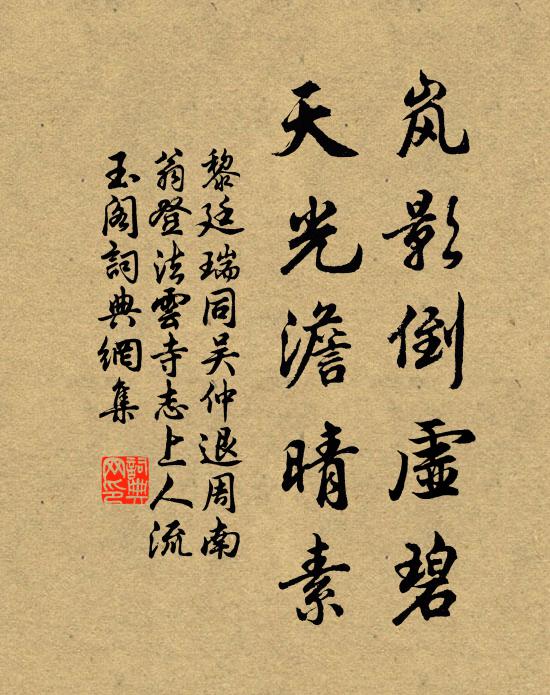 岚影倒虛碧
天光澹晴素
黎廷瑞同吴仲退周南
翁登法雲寺志上人流
玉阁詞典網集
詞典网印